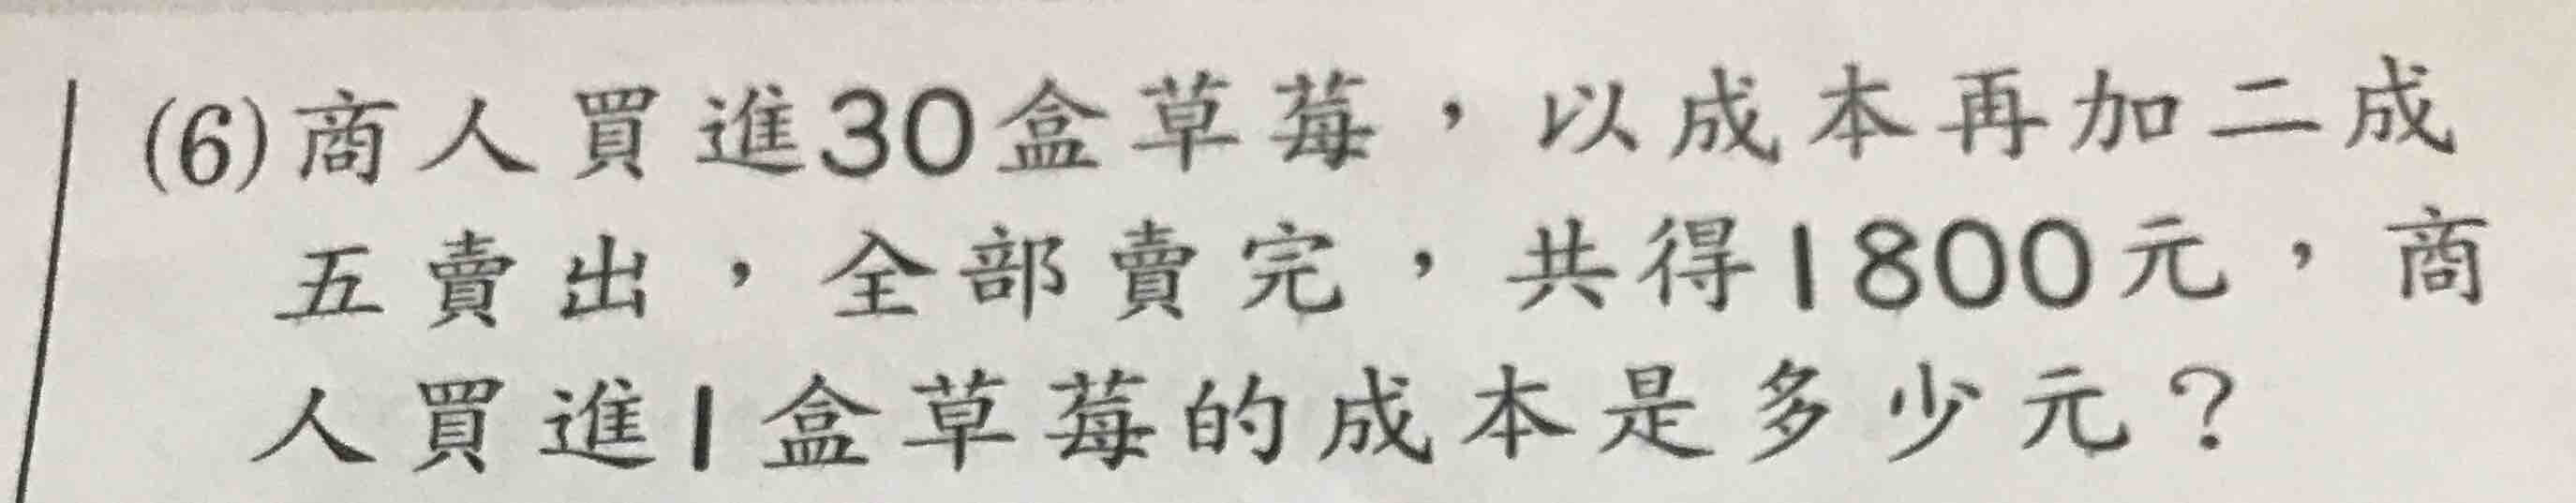 (6)商人買進30盒草莓，以成本再加二成
五賣出，全部賣完，共得1800元，商
人買進1盒草莓的成本是多少元？